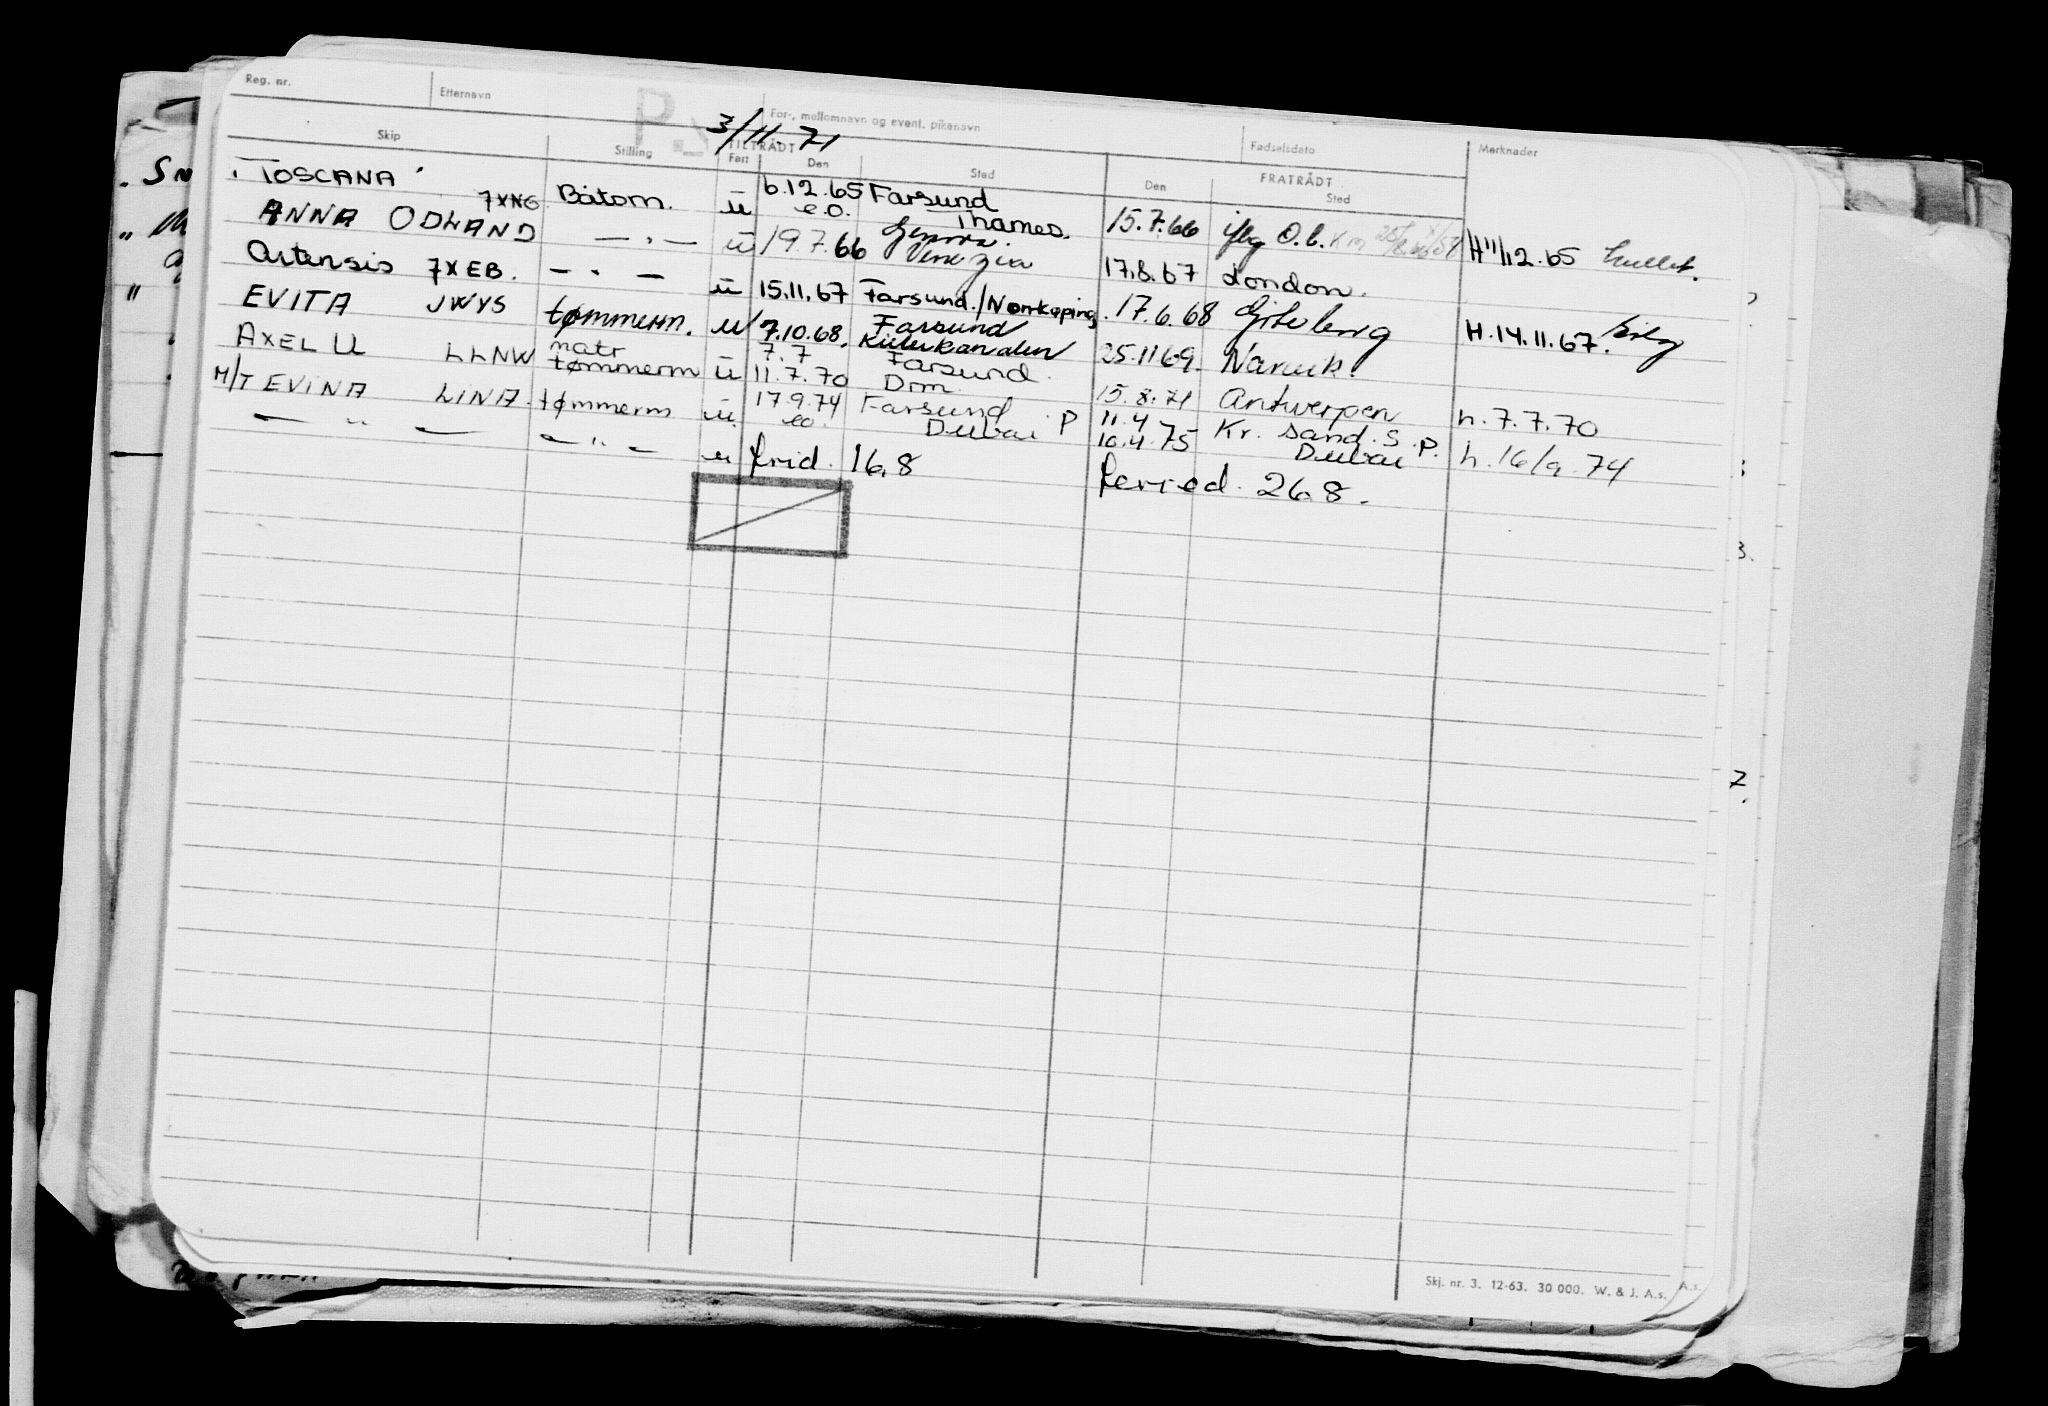 Reg. nr. Etternavn For-, mellomnavn og event. pikenavn Fødselsdato Merknader
P. 3/11.71
Skip Stilling Fart TILTRÅDT Den Sted FRATRÅDT Den Sted
"TOSCANA" Båtsm. u 6.12.65 Farsund
e.o. Thames. 15.7.66 O.b. H 11/12.65
7XNG
ANNA ODLAND — " — u 19.7.66 Genova.
Venezia 17.8.67 London.
Artensis 7XEB. — " — u 15.11.67 Farsund./Norrkøping 17.6.68 Gøteborg H.14.11.67.
EVITA JWYS tømmerm. u 7.10.68. Farsund
Kielerkanalen 25.11 69. Narvik.
AXEL U LLNW matr 7.7 Farsund.
tømmerm u 11.7.70 Drm. 15.8.71 Antwerpen h.7.7.70
M/T EVINA LINA. tømmerm u. 17.9.74 Farsund 11.4 Kr. sand. S. P.
eo. Dubai P 10.4.75 Dubai h.16/9.74
— " — — " — u frid. 16.8 feried. 26.8.
3.
7.
Skj. nr. 3. 12-63. 30 000. W. & J. A.s. A.s.